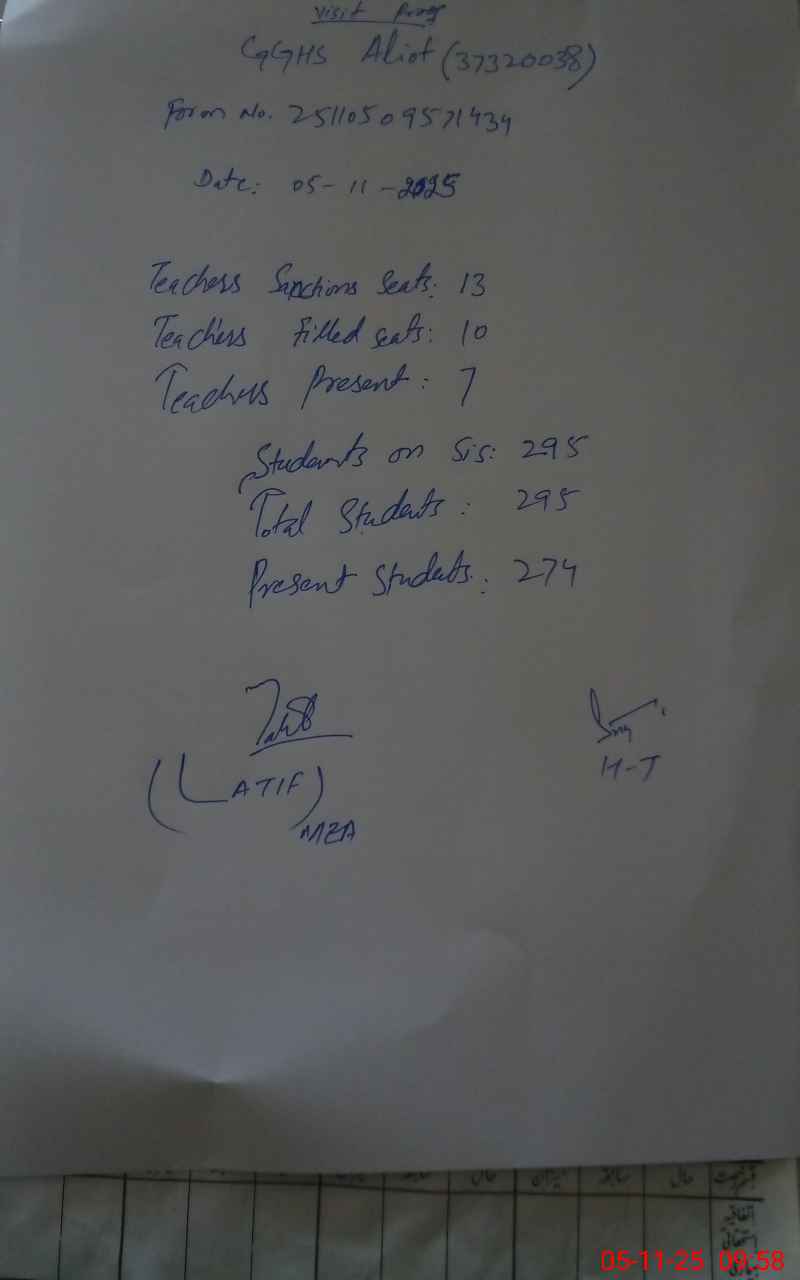 Visit Proof
GGHS Aliot (37320038)
Form No. 25110509571434
Date: 05-11-2025
Teachers Sanctions Seats: 13
Teachers filled seats: 10
Teachers Present: 7
Students on Sis: 295
Total Students: 295
Present Students: 274
(LATIF)
MEA
H-T
حال سابقہ میزان حال سابقہ حال
اتفاقیہ
استحقاقی
05-11-25 09:58